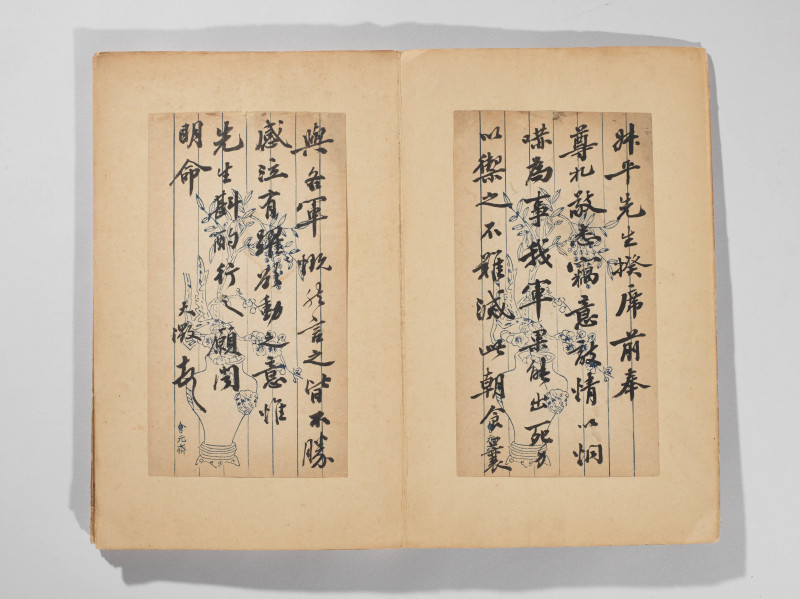 叔平先生揆席前奉
尊札敬悉竊意敵情以恫
喝為事我軍果能出死力
以禦之不難滅此朝食曩
與各軍慨然言之皆不勝
感泣有躍欲動之意惟
先生斟酌行之願聞
明命
天
會元齋